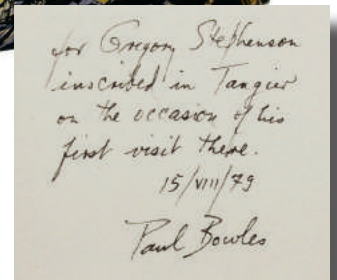 for Gregory Stephenson
inscribed in Tangier
on the occasion of his
first visit there.
15/VIII/79
Paul Bowles